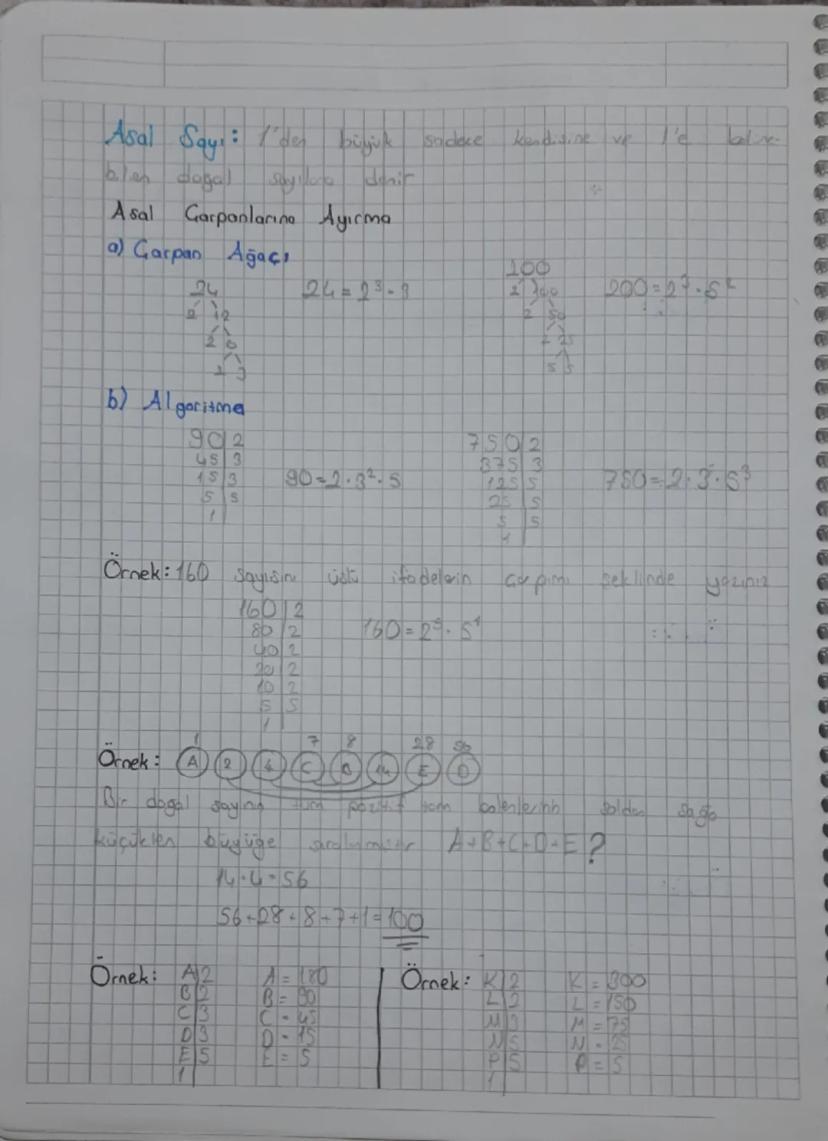 Asal Sayı: 1'den büyük sadece kendisine ve 1'e
bilen doğal sayılara denir
Asal Çarpanlarına Ayırma
a) Çarpan Ağacı
24 24 = 2³ · 3 200 200 = 2³ · 5²
2 12 2 100
2 6 2 50
2 3 2 25
5 5
b) Algoritma
90 2 750 2
45 3 375 3
15 3 90 = 2 · 3² · 5 125 5 750 = 2 · 3 · 5³
5 5 25 5
1 5 5
1
Örnek: 160 sayısını üslü ifadelerin çarpımı şeklinde yazınız
160 2
80 2 160 = 2⁵ · 5¹
40 2
20 2
10 2
5 5
1
1 7 8 28 56
Örnek: A 2 4 C B 14 E D
Bir doğal sayının tüm pozitif tam bölenlerinin soldan sağa
küçükten büyüğe sıralanmıştır A+B+C+D+E?
14 · 4 = 56
56+28+8+7+1=100
Örnek: A 2 A = 180 Örnek: K 2 K = 300
B 2 B = 90 L 2 L = 150
C 3 C = 45 M 3 M = 75
D 3 D = 15 N 5 N = 25
E 5 E = 5 P 5 P = 5
1 1